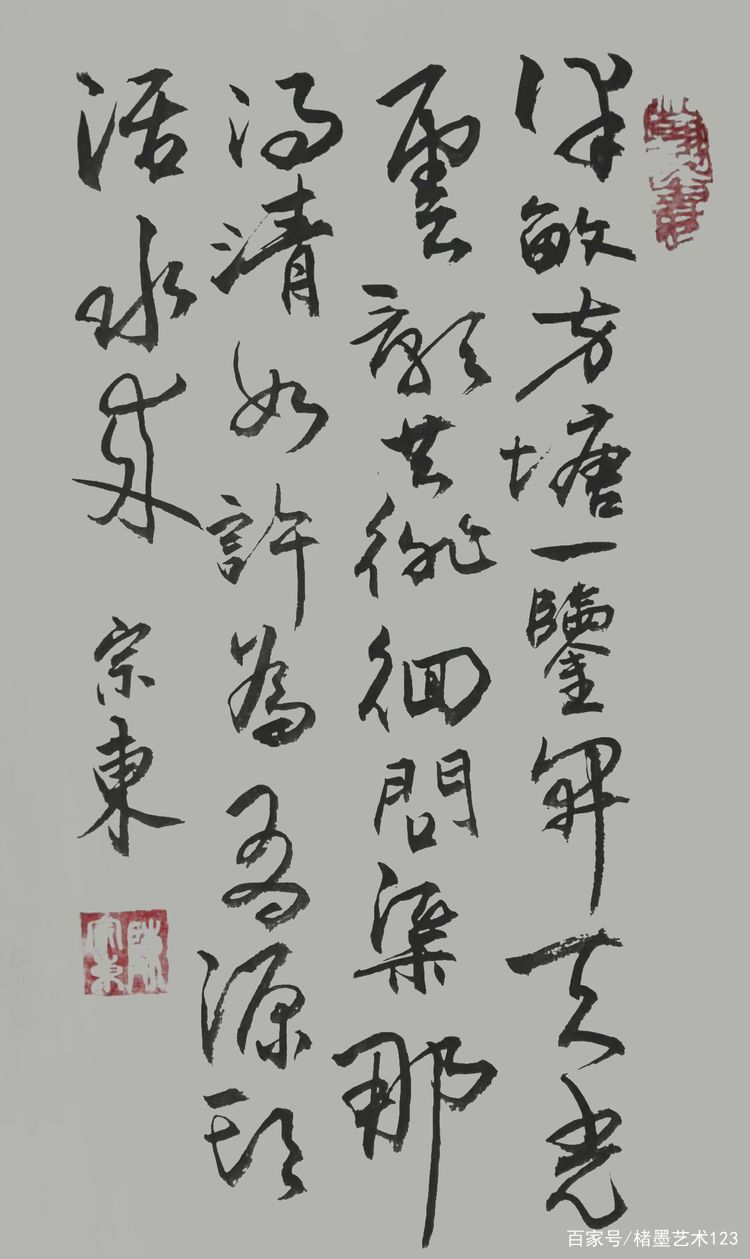 半畝方塘一鑒開天光
雲影共徘徊問渠那
得清如許為有源頭
活水來
宗東
陳宗東
百家号/楮墨艺术123